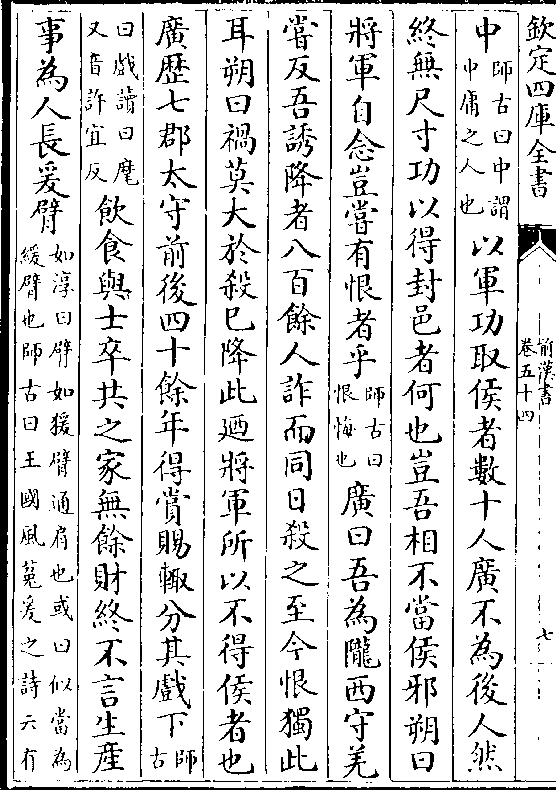 欽定四庫全書
前漢書
卷五十四
七
中
師古曰中謂
中庸之人也
以軍功取侯者數十人廣不為後人然
終無尺寸功以得封邑者何也豈吾相不當侯邪朔曰
將軍自念豈嘗有恨者乎
師古曰
恨悔也
廣曰吾為隴西守羌
嘗反吾誘降者八百餘人詐而同日殺之至今恨獨此
耳朔曰禍莫大於殺已降此廼將軍所以不得侯者也
廣歴七郡太守前後四十餘年得賞賜輙分其戲下
師
古
曰戲讀曰麾
又音許宜反
飲食與士卒共之家無餘財終不言生産
事為人長爰臂
如淳曰臂如猨臂通肩也或曰似當為
緩臂也師古曰王國風菟爰之詩云有